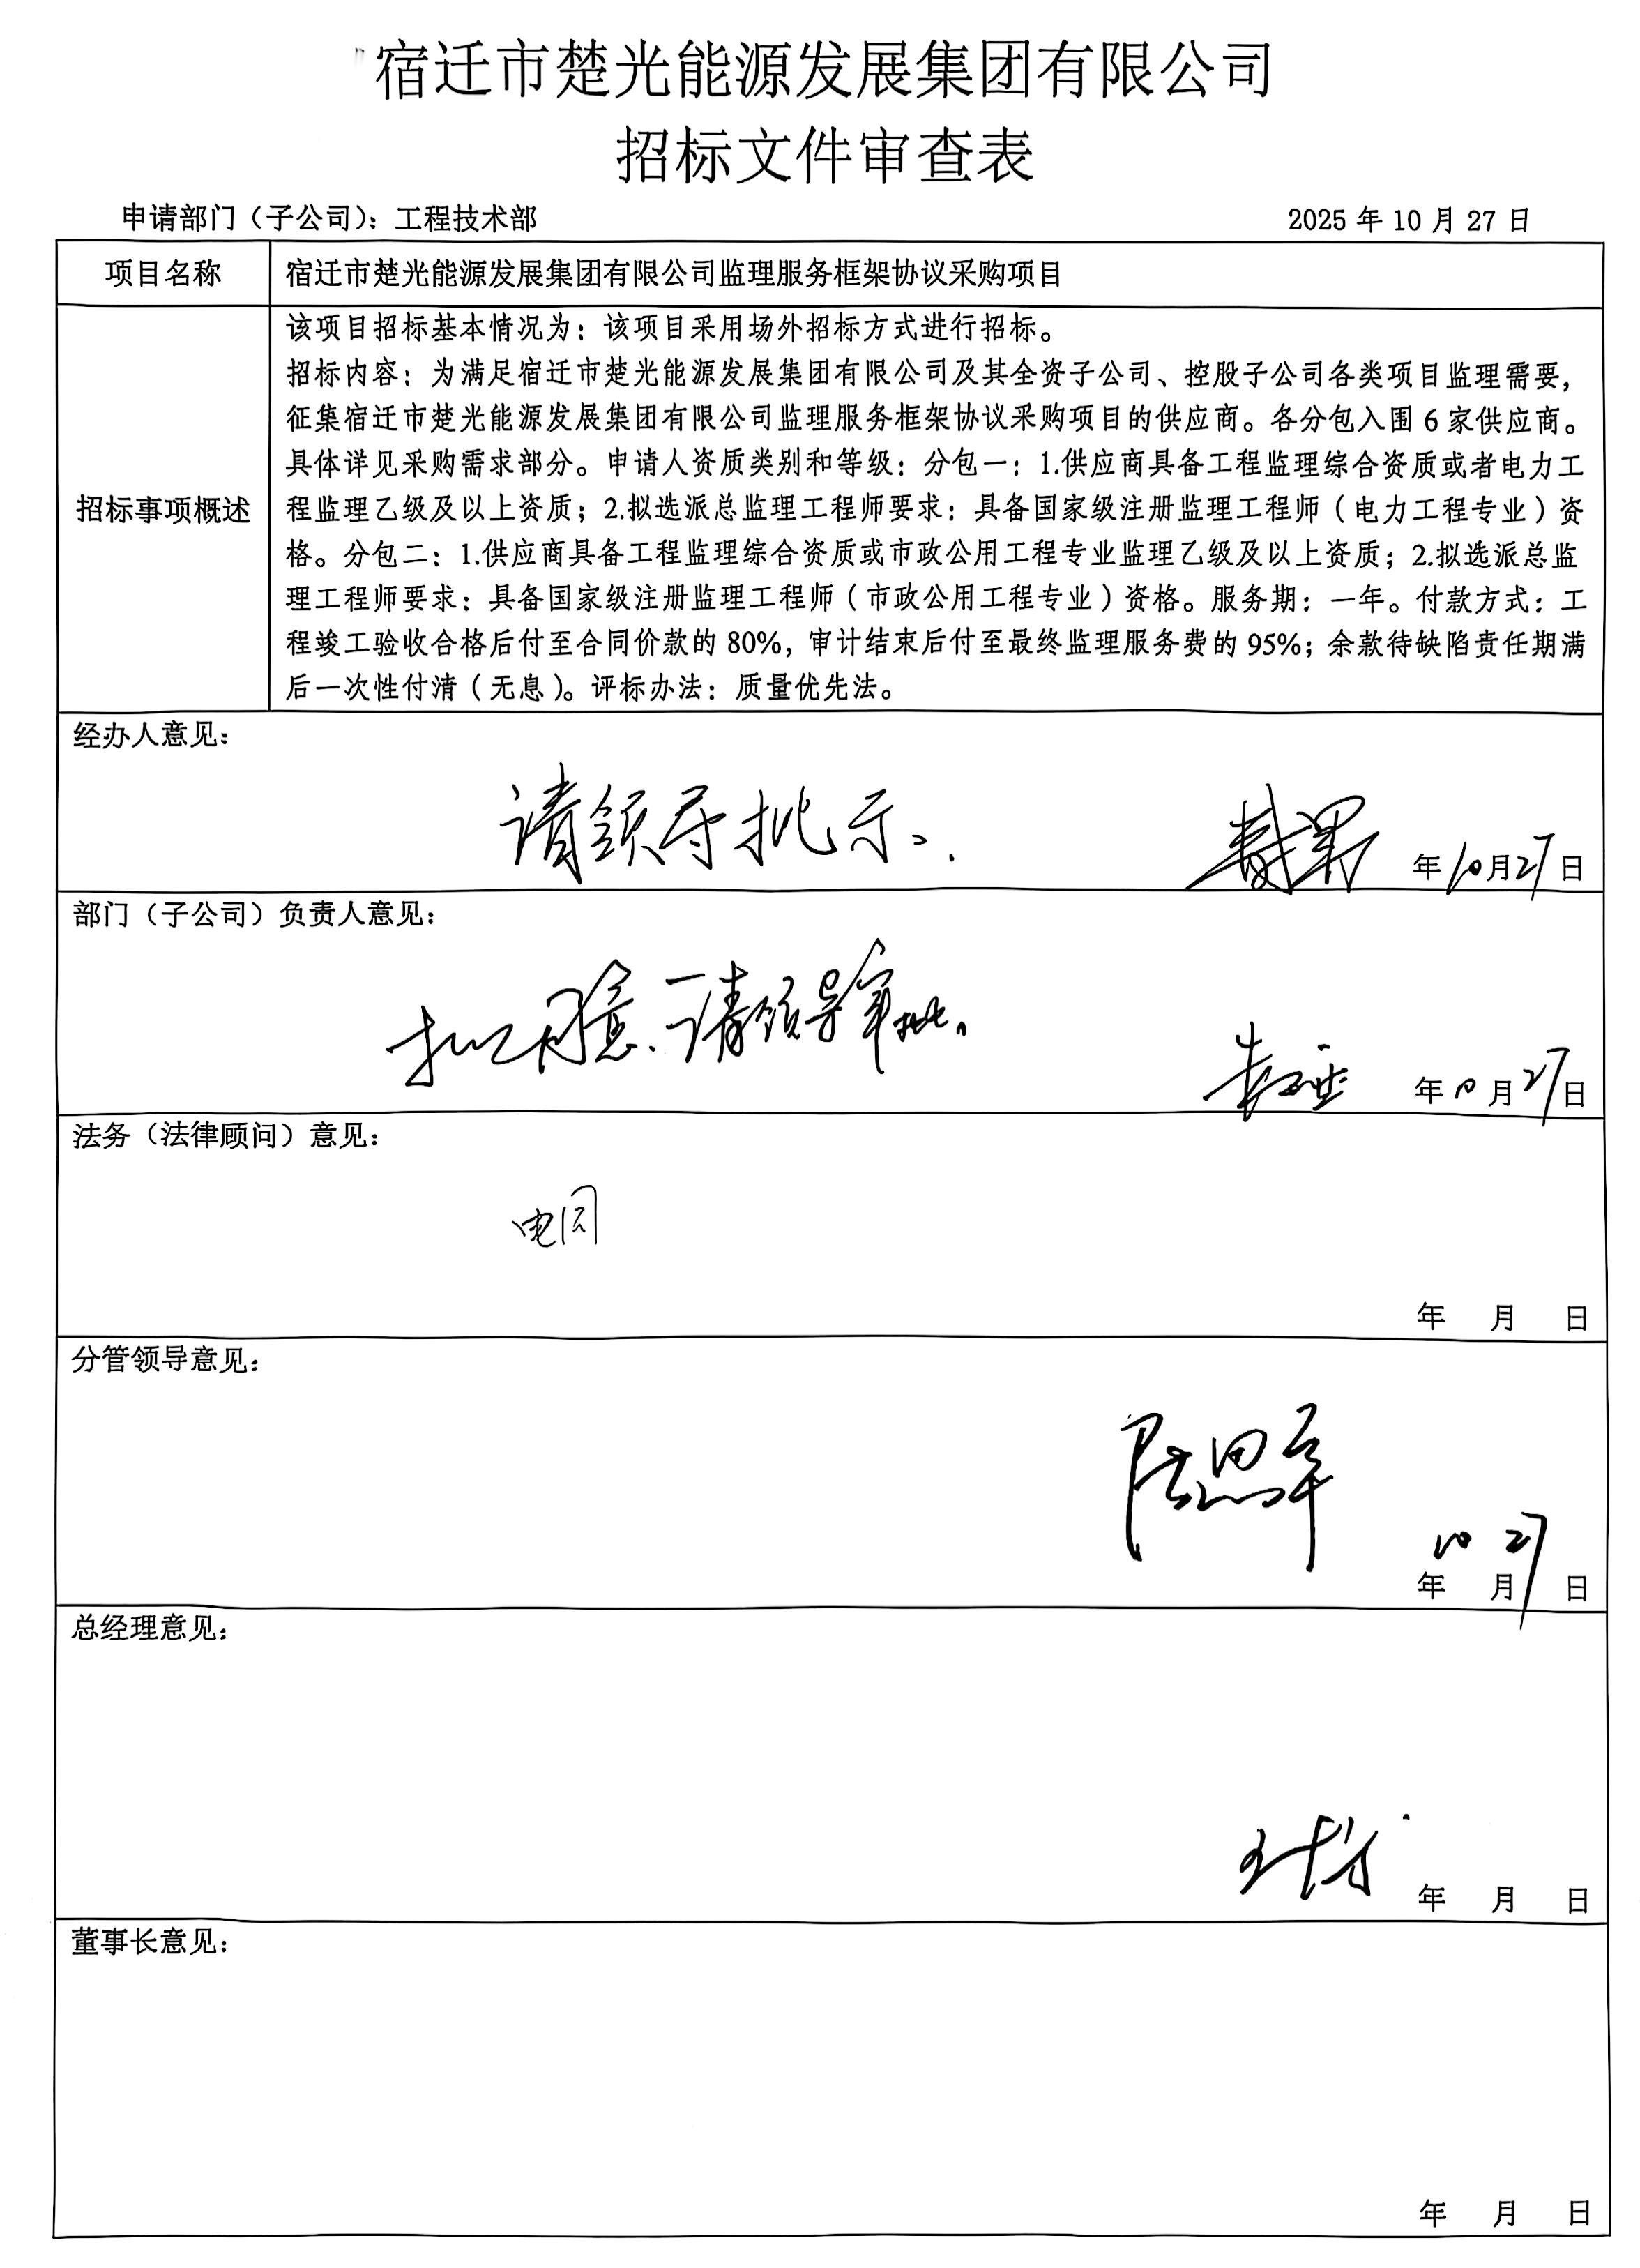 宿迁市楚光能源发展集团有限公司
招标文件审查表
申请部门（子公司）：工程技术部 2025 年 10 月 27 日
项目名称 宿迁市楚光能源发展集团有限公司监理服务框架协议采购项目
招标事项概述
该项目招标基本情况为：该项目采用场外招标方式进行招标。
招标内容：为满足宿迁市楚光能源发展集团有限公司及其全资子公司、控股子公司各类项目监理需要，
征集宿迁市楚光能源发展集团有限公司监理服务框架协议采购项目的供应商。各分包入围 6 家供应商。
具体详见采购需求部分。申请人资质类别和等级：分包一：1.供应商具备工程监理综合资质或者电力工
程监理乙级及以上资质；2.拟选派总监理工程师要求：具备国家级注册监理工程师（电力工程专业）资
格。分包二：1.供应商具备工程监理综合资质或市政公用工程专业监理乙级及以上资质；2.拟选派总监
理工程师要求：具备国家级注册监理工程师（市政公用工程专业）资格。服务期：一年。付款方式：工
程竣工验收合格后付至合同价款的 80%，审计结束后付至最终监理服务费的 95%；余款待缺陷责任期满
后一次性付清（无息）。评标办法：质量优先法。
经办人意见：
请领导批示。
年 10 月 27 日
部门（子公司）负责人意见：
拟同意、请领导审批。
年 10 月 27 日
法务（法律顾问）意见：
电同
年 月 日
分管领导意见：
10 27
年 月 日
总经理意见：
年 月 日
董事长意见：
年 月 日